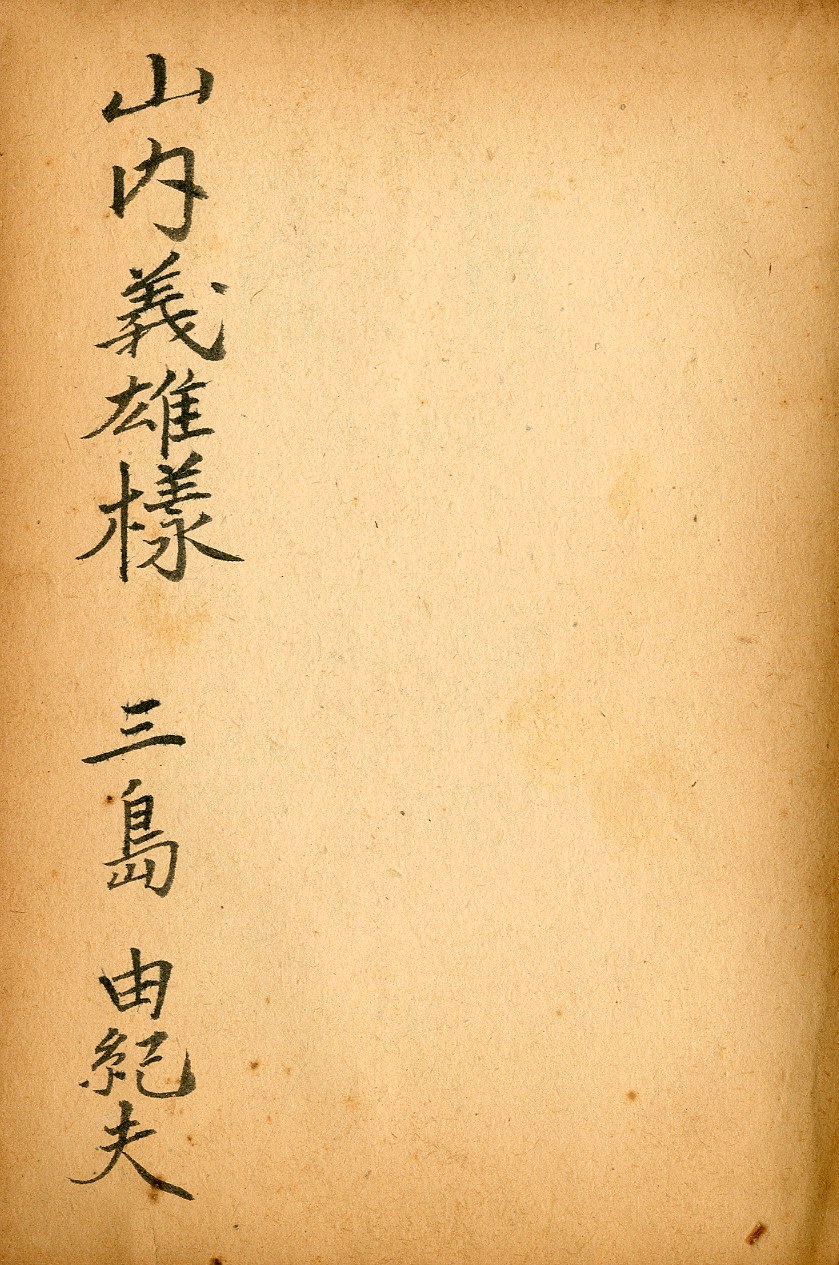 山内義雄樣 三島由紀夫